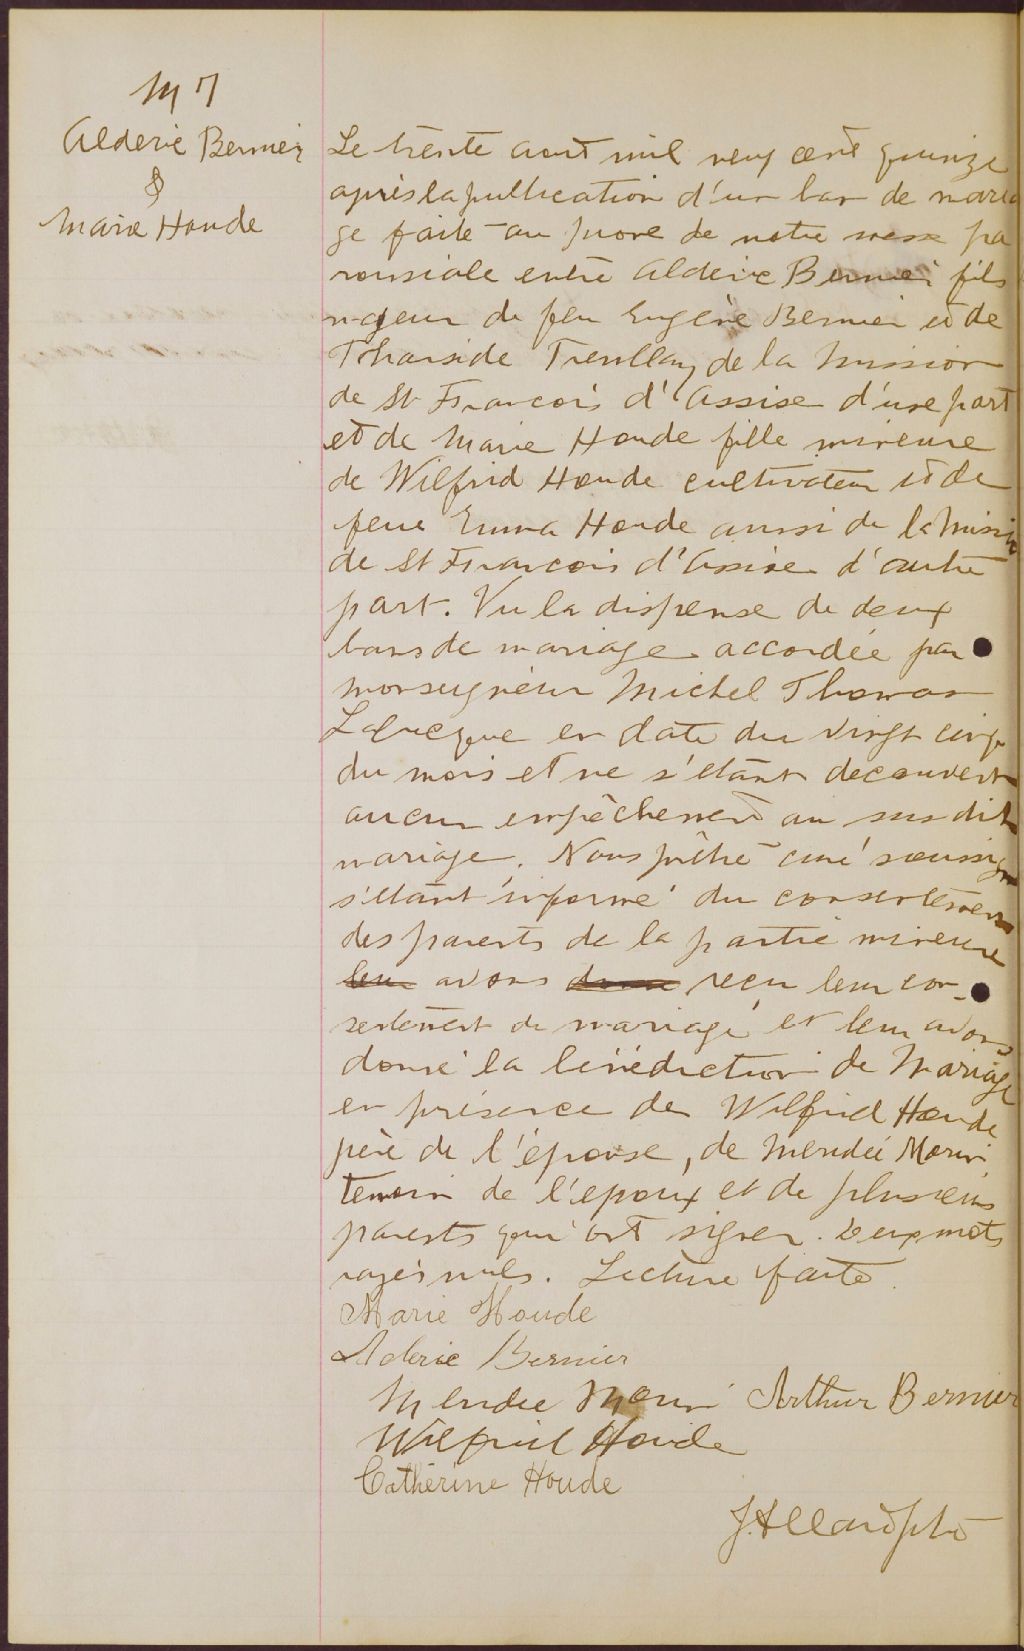 M 7
Alderic Bernier
&
Marie Houde
Le trente aout mil neuf cent quinze
après la publication d'un ban de maria
ge faite au prone de notre messe pa
roissiale entre Alderic Bernier fils
majeur de feu Eugène Bernier et de
Tharside Tremblay de la Mission
de St François d'Assise d'une part
et de Marie Houde fille mineure
de Wilfrid Houde cultivateur et de
feue Emma Houde aussi de la Mission
de St François d'Assise d'autre
part. Vu la dispense de deux
bans de mariage accordée par
Monseigneur Michel Thomas
Labrecque en date du vingt cinq
du mois et ne s'étant decouvert
aucun empêchement au susdit
mariage. Nous prêtre curé soussigné
s'étant informé du consentement
des parents de la partie mineure
leur avons donné reçu leur con-
sentement de mariage et leur avons
donné la bénédiction de Mariage
en présence de Wilfrid Houde
père de l'épouse, de Mendée Morin
temoin de l'epoux et de plusieurs
parents qui ont signer. Deux mots
rayés nuls. Lecture faite.
Marie Houde
Aderic Bernier
Mendée Morin Arthur Bernier
Wilfrid Houde
Catherine Houde
J. Allard ptre